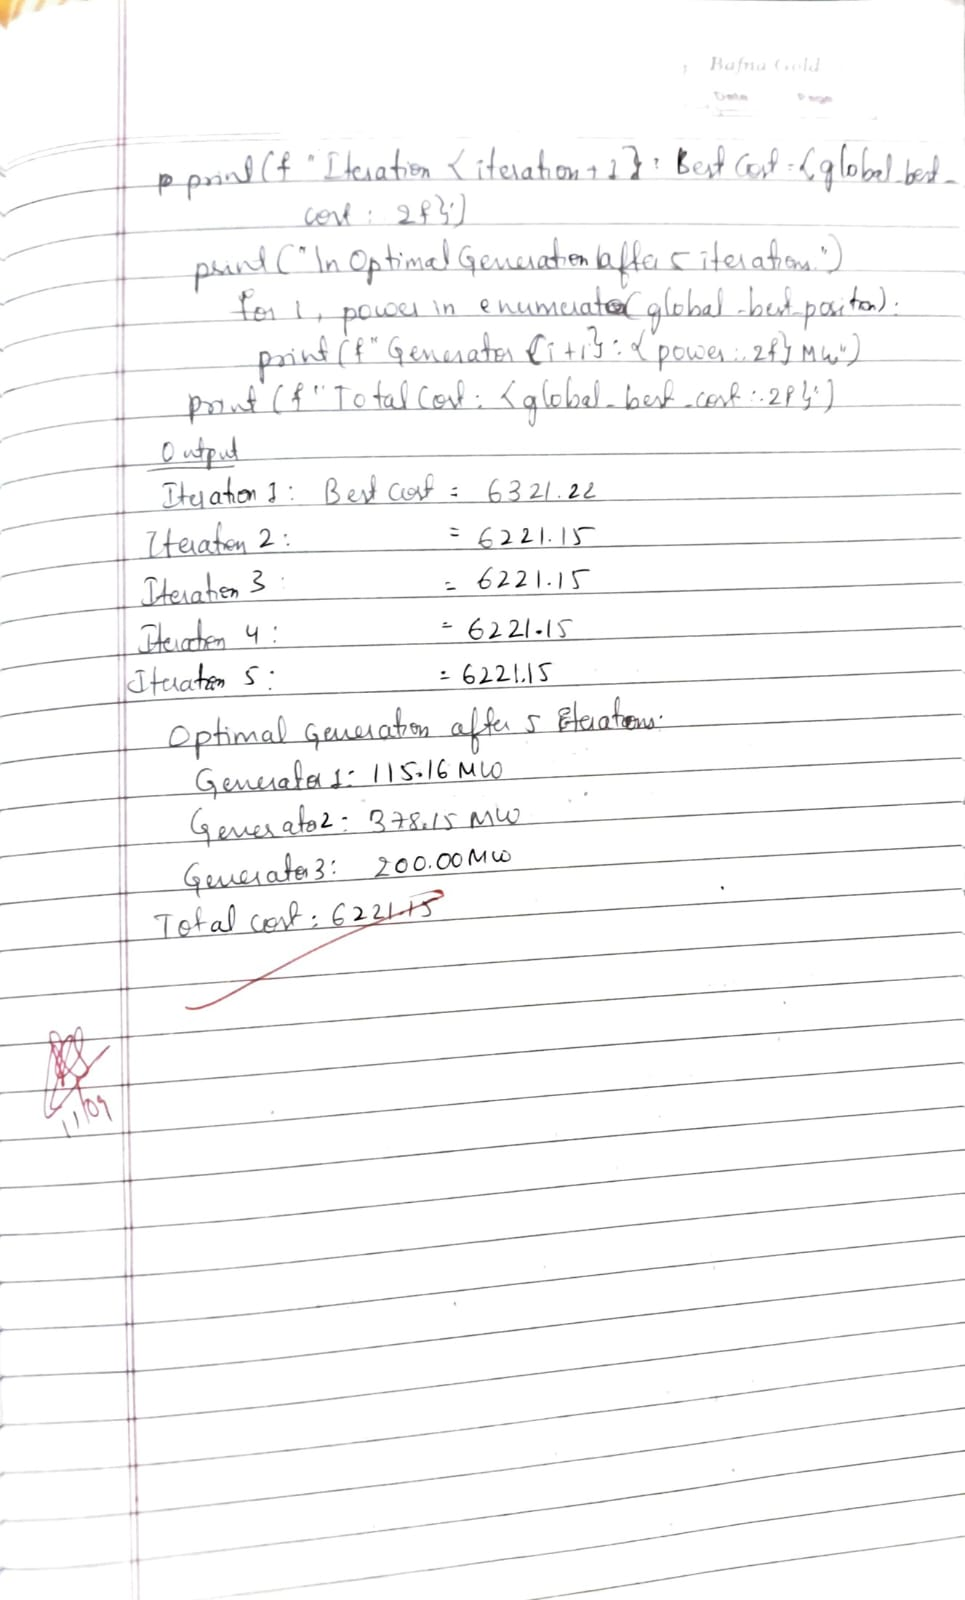 Bafna Gold
Date Page
p print(f "Iteration {iteration + 1} : Best Cost = {global_best_
cost : 2f}")
print("\n Optimal Generation after 5 iterations.")
for i, power in enumerate(global_best_position):
print(f" Generator {i+1} : {power : .2f} MW")
print(f "Total Cost : {global_best_cost : .2f}")
Output
Iteration 1 : Best Cost = 6321.22
Iteration 2 : = 6221.15
Iteration 3 : = 6221.15
Iteration 4 : = 6221.15
Iteration 5 : = 6221.15
Optimal Generation after 5 Iterations:
Generator 1: 115.16 MW
Generator 2: 378.15 MW
Generator 3: 200.00 MW
Total cost : 6221.15
11/09